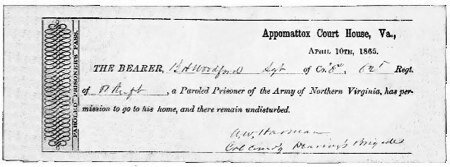 Appomattox Court House, Va.,
APRIL 10TH, 1865.
THE BEARER, Sgt of Co. Regt.
of , a Paroled Prisoner of the Army of Northern Virginia, has per-
mission to go to his home, and there remain undisturbed.
Brigade
PAROLED PRISONER'S PASS.